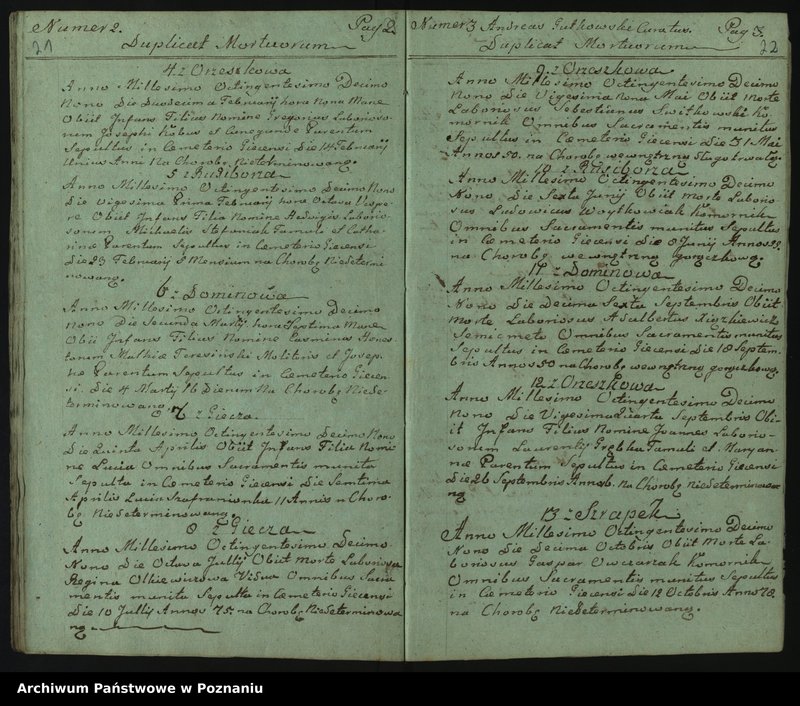 Numer 2. Pag 2.
21
Duplicat Mortuorum
4 z Orzeszkowa
Anno Millesimo Octingentesimo Decimo
Nono Die Duodecima Februarij hora Nona Mane
Obiit Infans Filius Nomine Gregorius Laborioso-
rum Josephi Kobus et Cunegundę Parentum
Sepultus in Cemeterio Giecensi Die 14 Februarij
Unius Anni Na Chorobę Nieterminowaną.
5 z Rusiborza
Anno Millesimo Octingentesimo Decimo Nono
Die Vigesima Prima Februarij hora Octava Vespe-
re Obiit Infans Filia Nomine Hedwigis Laborio-
sorum Michaelis Stefaniak Famuli et Catha-
rinæ Parentum Sepultus in Cemeterio Giecensi
Die 23 Februarij 8 Mensium na Chorobę Niedetermi
nowaną.
6 z Dominowa
Anno Millesimo Octingentesimo Decimo
Nono Die Secunda Martij hora Septima Mane
Obii Infans Filius Nomine Casmirus Hones-
torum Mathiæ Teresiński Molitoris et Josep-
hæ Parentum Sepultus in Cemeterio Giecen-
si. Die 4 Martij 16 Dierum Na Chorobę Niede-
terminowaną.
7 z Giecza.
Anno Millesimo Octingentesimo Decimo Nono
Die Quinta Aprilis Obiit Infans Filia Nomi
ne Lucia Omnibus Sacramentis munita
Sepulta in Cemeterio Giecensi Die Septima
Aprilis Lucia Szafranionka 11 Annis n Choro-
bę Niedeterminowaną.
8 z Giecza
Anno Millesimo Octingentesimo Decimo
Nono Die Octava Jullij Obiit Morte Laboriosa
Regina Vidua Omnibus Sacra
mentis munita Sepulta in Cemeterio Giecensi
Die 10 Jullij Annos 75. na Chorobę Niedeterminowa
ną
Numer 3 Andreas Gutkowski Curatus. Pag 3.
22
Duplicat Mortuorum
9 z Orzeszkowa
Anno Millesimo Octingentesimo Decimo
Nono Die Vigesima Nona Mai Obiit Morte
Laboriosus Sebestianus Switkowski Ko
mornik Omnibus Sacramentis munitus
Sepultus in Cemeterio Giecensi Die 31 Mai
Annos 50. na Chorobę wewnętrzną długo trwałą.
10 z Rusiborza
Anno Millesimo Octingentesimo Decimo
Nono Die Sexta Junij Obiit Morte Laborio
sus Ludowicus Woytkowiak Komornik
Omnibus Sacramentis munitus Sepultus
in Cemeterio Giecensi Die 8 Junij Annos 39.
na Chorobę wewnętrzną gorączkową.
11 z Dominowa
Anno Millesimo Octingentesimo Decimo
Nono Die Decima Sexta Septembris Obiit
Morte Laboriosus Adalbertus Xiążkiewicz
Semicmeto Omnibus Sacramentis munitus
Sepultus in Cemeterio Giecensi Die 18 Septem-
bris Annos 50 na Chorobę wewnętrzną gorączkową.
12 z Orzeszkowa
Anno Millesimo Octingentesimo Decimo
Nono Die Vigesima Quarta Septembris Obi-
it Infans Filius Nomine Joannes Laborio-
sorum Laurentij Grębka Famuli et Maryan-
næ Parentum Sepultus in Cemeterio Giecensi
Die 26 Septembris Annos 6. na Chorobę Niedeterminowa
ną
13 z Szrapek
Anno Millesimo Octingentesimo Decimo
Nono Die Decima Octobris Obiit Morte La-
boriosus Gaspar Owczarzak Komornik
Omnibus Sacramentis munitus Sepultus
in Cemeterio Giecensi Die 12 Octobris Anno 78.
na Chorobę Niedeterminowaną.
Archiwum Państwowe w Poznaniu